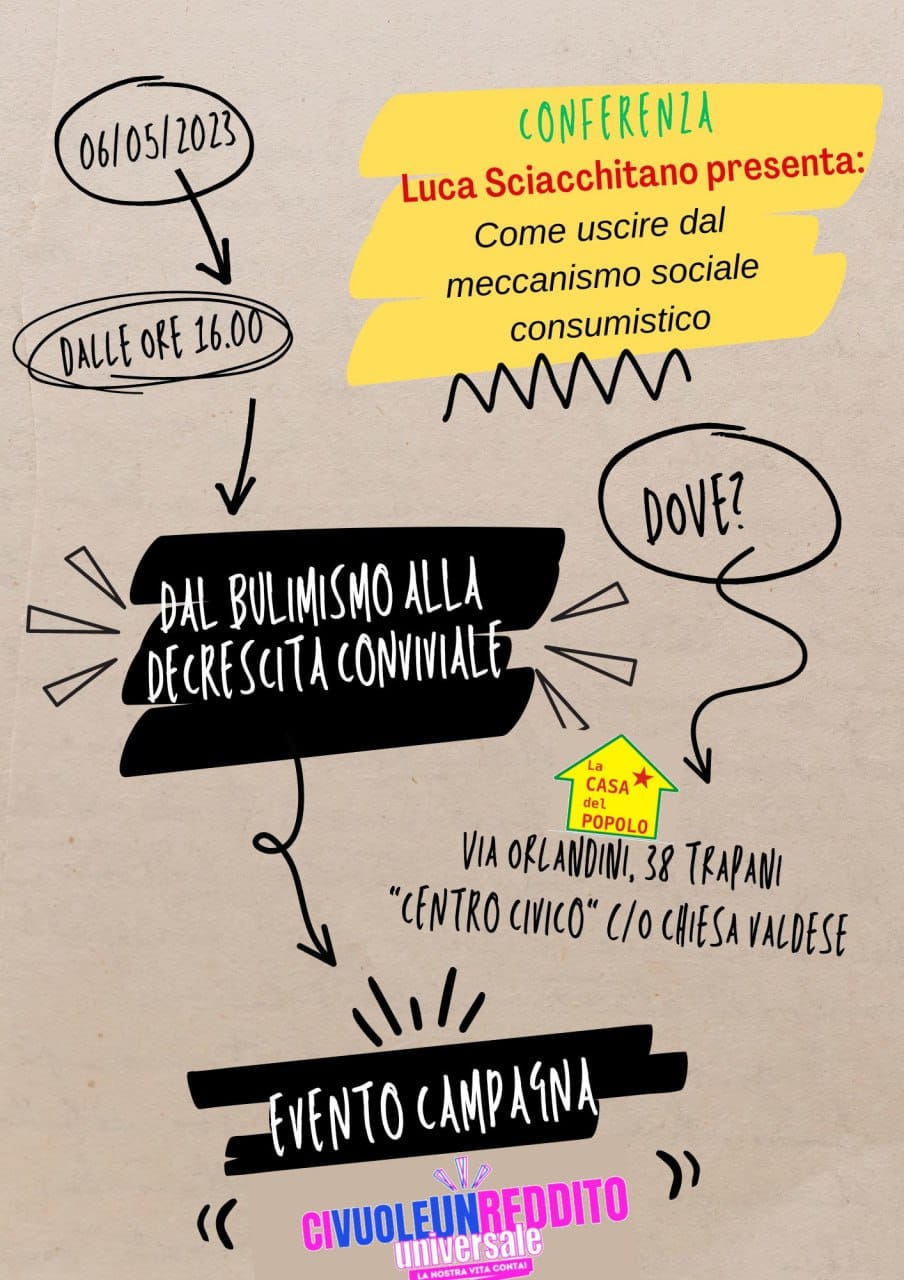 06/05/2023
DALLE ORE 16.00
CONFERENZA
Luca Sciacchitano presenta:
Come uscire dal
meccanismo sociale
consumistico
DAL BULIMISMO ALLA
DECRESCITA CONVIVIALE
DOVE?
La
CASA
del
POPOLO
VIA ORLANDINI, 38 TRAPANI
"CENTRO CIVICO" C/O CHIESA VALDESE
EVENTO CAMPAGNA
CIVUOLEUNREDDITO
universale
LA NOSTRA VITA CONTA!